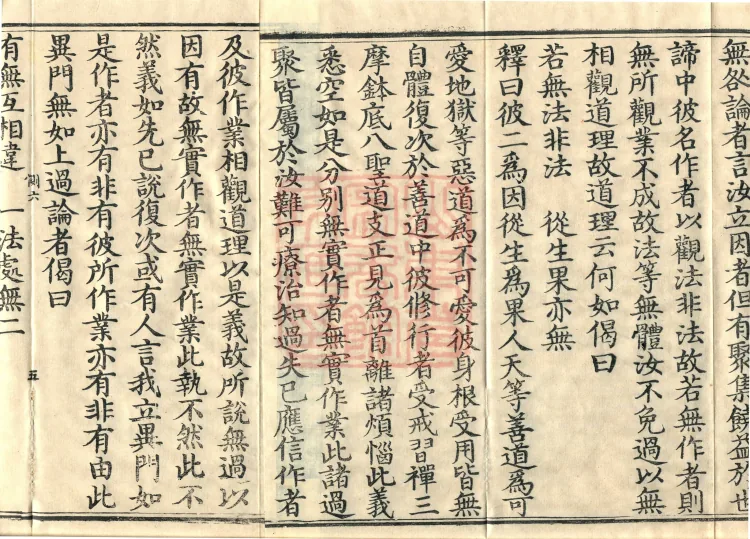 無咎論者言汝立因者但有聚集饒益於世
諦中彼名作者以觀法非法故若無作者則
無所觀業不成故法等無體汝不免過以無
相觀道理故道理云何如偈曰
若無法非法 從生果亦無
釋曰彼二為因從生為果人天等善道為可
愛地獄等惡道為不可愛彼身根受用皆無
自體復次於善道中彼修行者受戒習禪三
摩鉢底八聖道支正見為首離諸煩惱此義
悉空如是分別無實作者無實作業此諸過
聚皆屬於汝難可療治知過失已應信作者
及彼作業相觀道理以是義故所說無過以
因有故無實作者無實作業此執不然此不
然義如先已說復次或有人言我立異門如
是作者亦有非有彼所作業亦有非有由此
異門無如上過論者偈曰
五
有無互相違 一法處無二